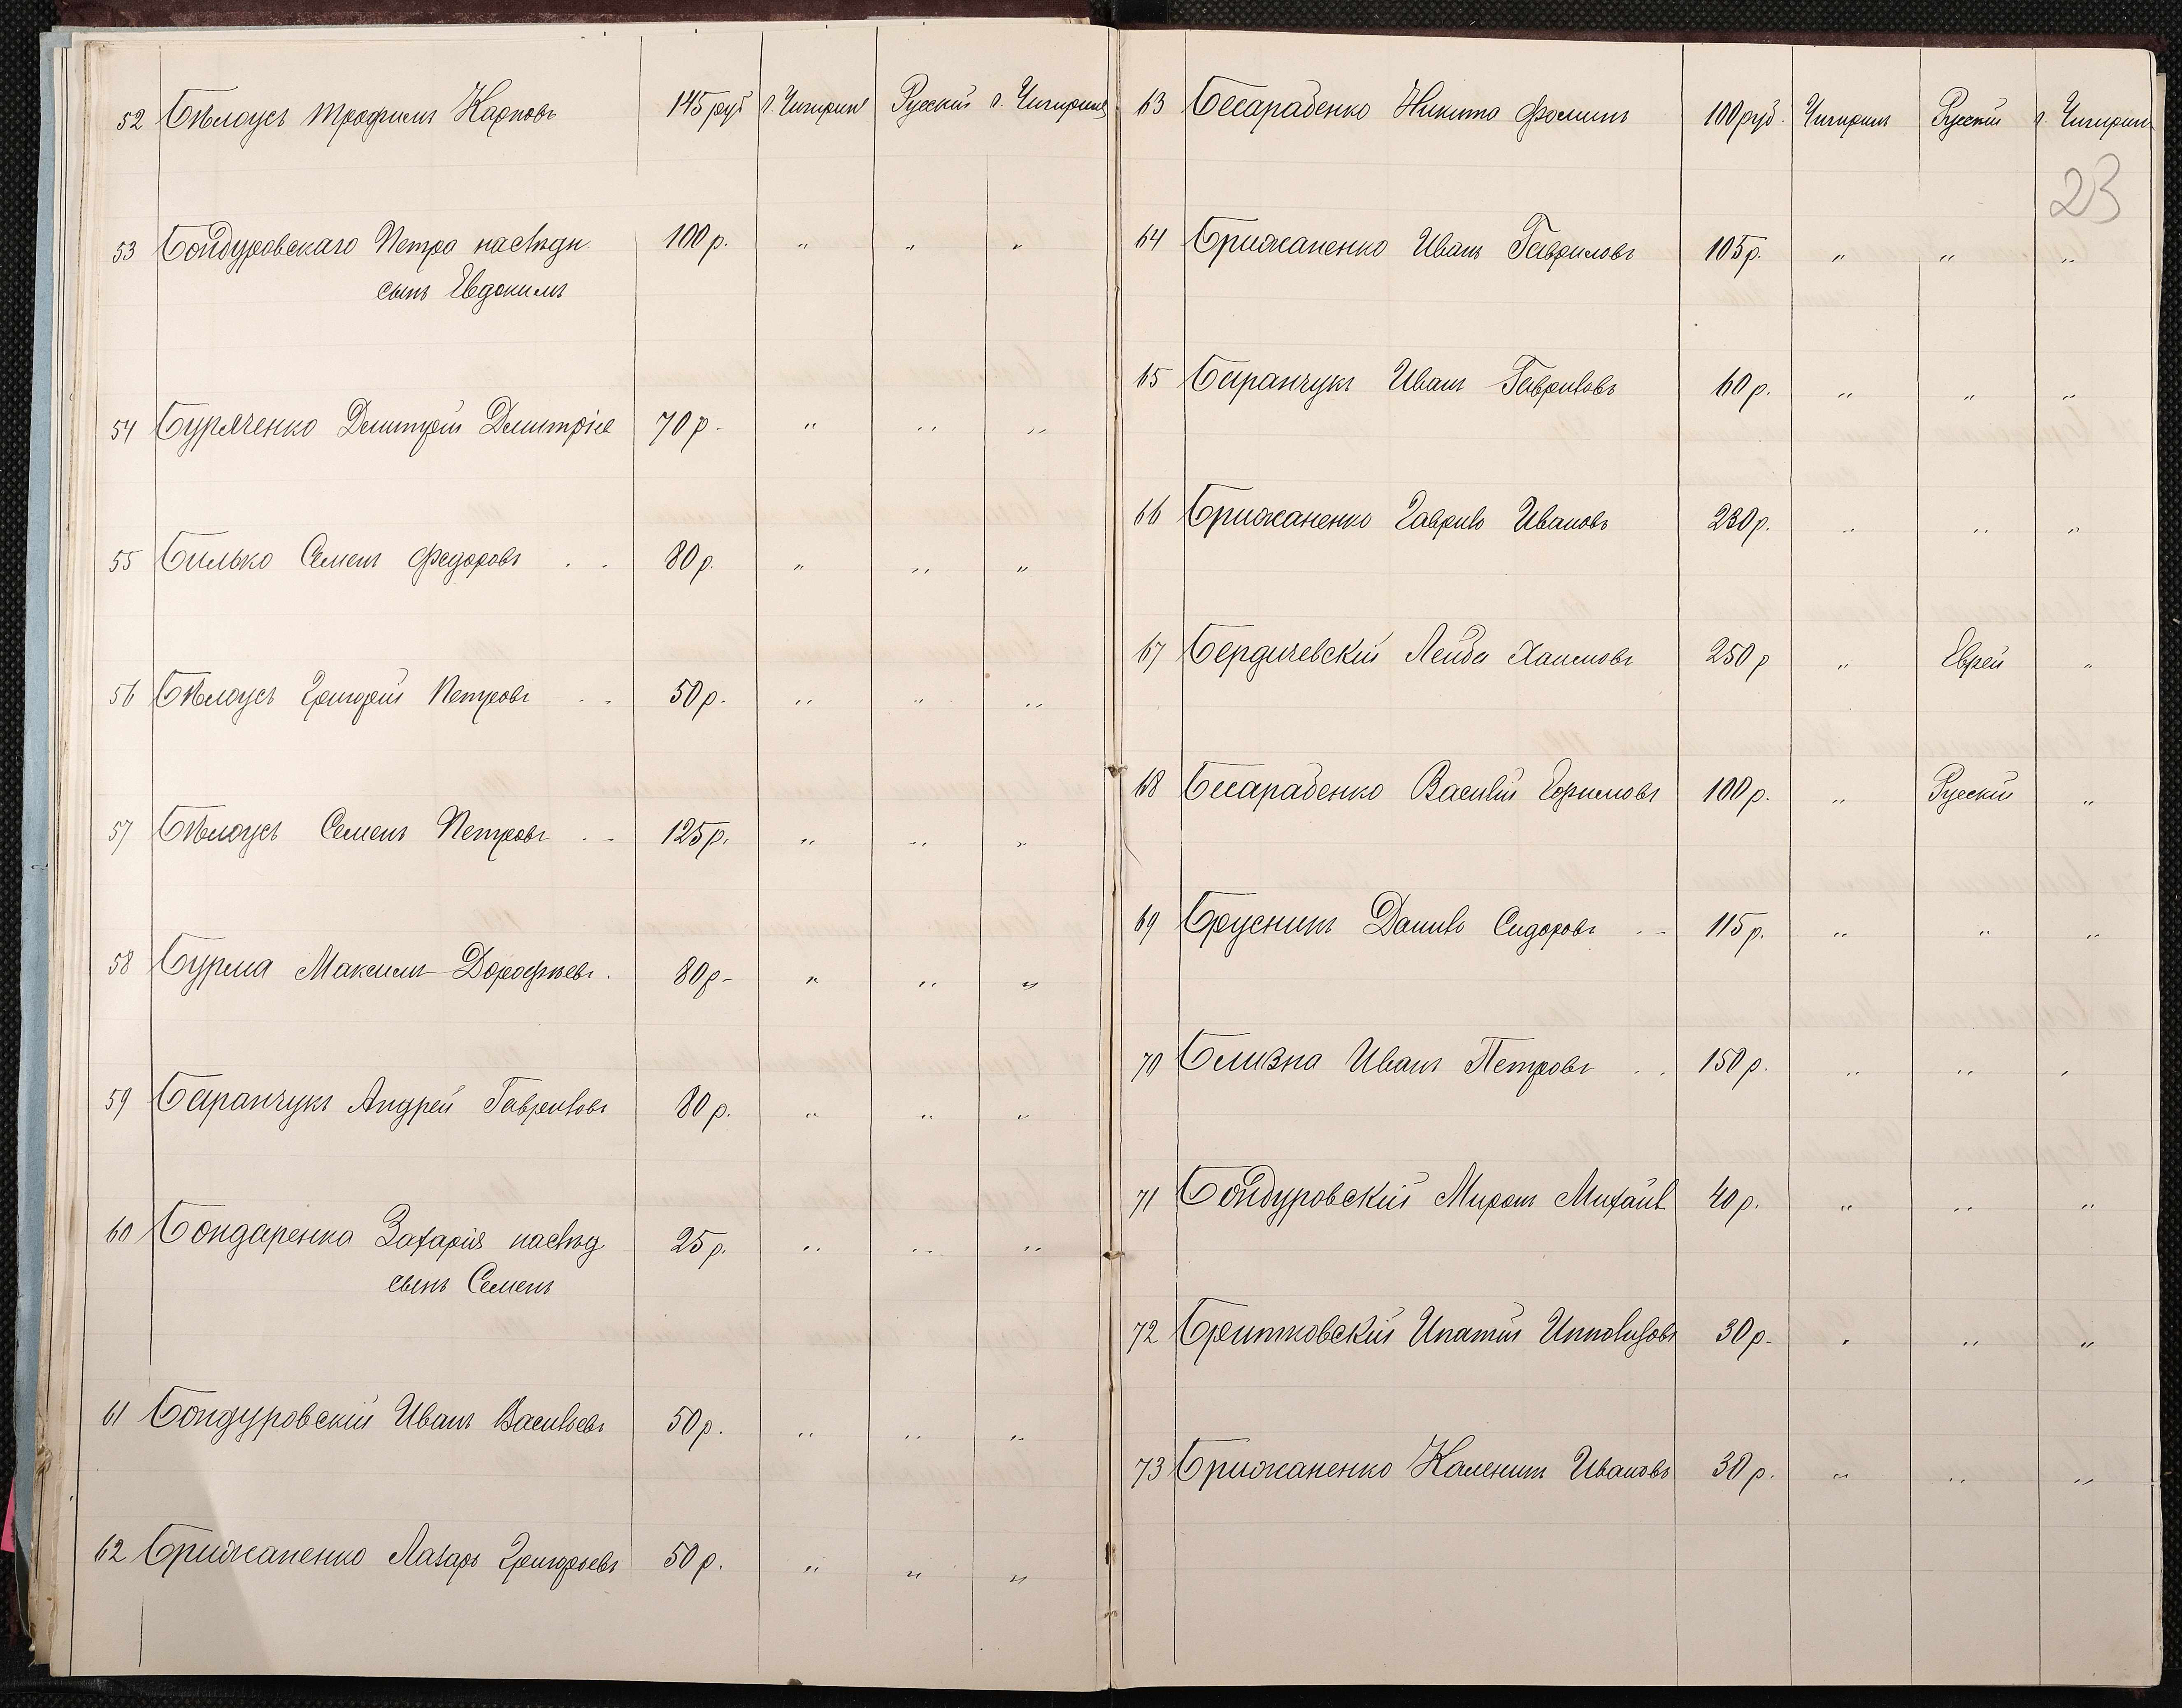 52 Бѣлоусъ Трофимъ Карповъ 145 руб г. Чигирине Русский г. Чигирине
53 Бондуровскаго Петра наслѣдн. 100 р. " " "
сынъ Евдокимъ
54 Бурлаченко Дмитрій Дмитріе 70 р. " " "
55 Билько Семенъ Федоровъ 80 р. " " "
56 Бѣлоусъ Григорій Петровъ 50 р. " " "
57 Бѣлоусъ Семенъ Петровъ 125 р. " " "
58 Бурма Максимъ Дорофѣевъ 80 р. " " "
59 Баранчукъ Андрей Гавриловъ 80 р. " " "
60 Бондаренка Захарія наслѣд 25 р. " " "
сынъ Семенъ
61 Бондуровскій Иванъ Васильевъ 50 р. " " "
62 Брижаненко Лазарь Григорьевъ 50 р. " " "
63 Бесарабенко Никита Фоминъ 100 руб. Чигиринъ Русский г. Чигирин
23
64 Брижаненко Иванъ Гавриловъ 105 р. " " "
65 Баранчукъ Иванъ Гавриловъ 60 р. " " "
66 Брижаненко Гаврило Ивановъ 230 р. " " "
67 Бердичевскій Лейба Хаимовъ 250 р " Еврей "
68 Бесарабенко Василій Ефимовъ 100 р. " Русский "
69 Брусникъ Данило Сидоровъ 115 р. " " "
70 Близна Иванъ Петровъ 150 р. " " "
71 Бондуровскій Миронъ Михайл 40 р. " " "
72 Бритковскій Ипатій Ипполитовъ 30 р. " " "
73 Брижаненко Каленикъ Ивановъ 30 р. " " "